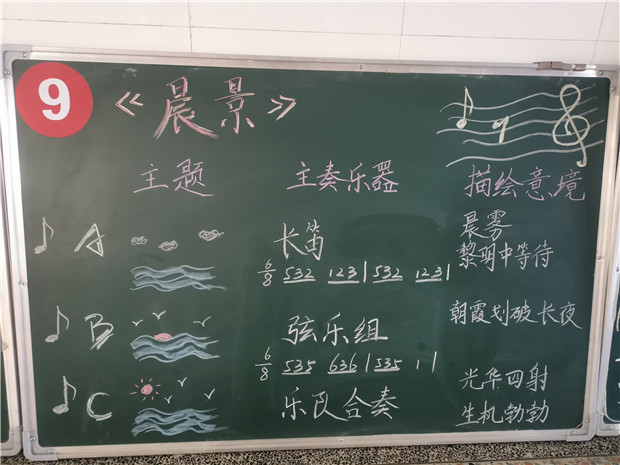 9
《晨景》
主题 主奏乐器 描绘意境
A 长笛 晨雾
黎明中等待
6/8 532 1231 | 532 1231 |
B 弦乐组 朝霞划破长夜
6/8 535 636 | 535 1 |
C 乐队合奏 光华四射
生机勃勃